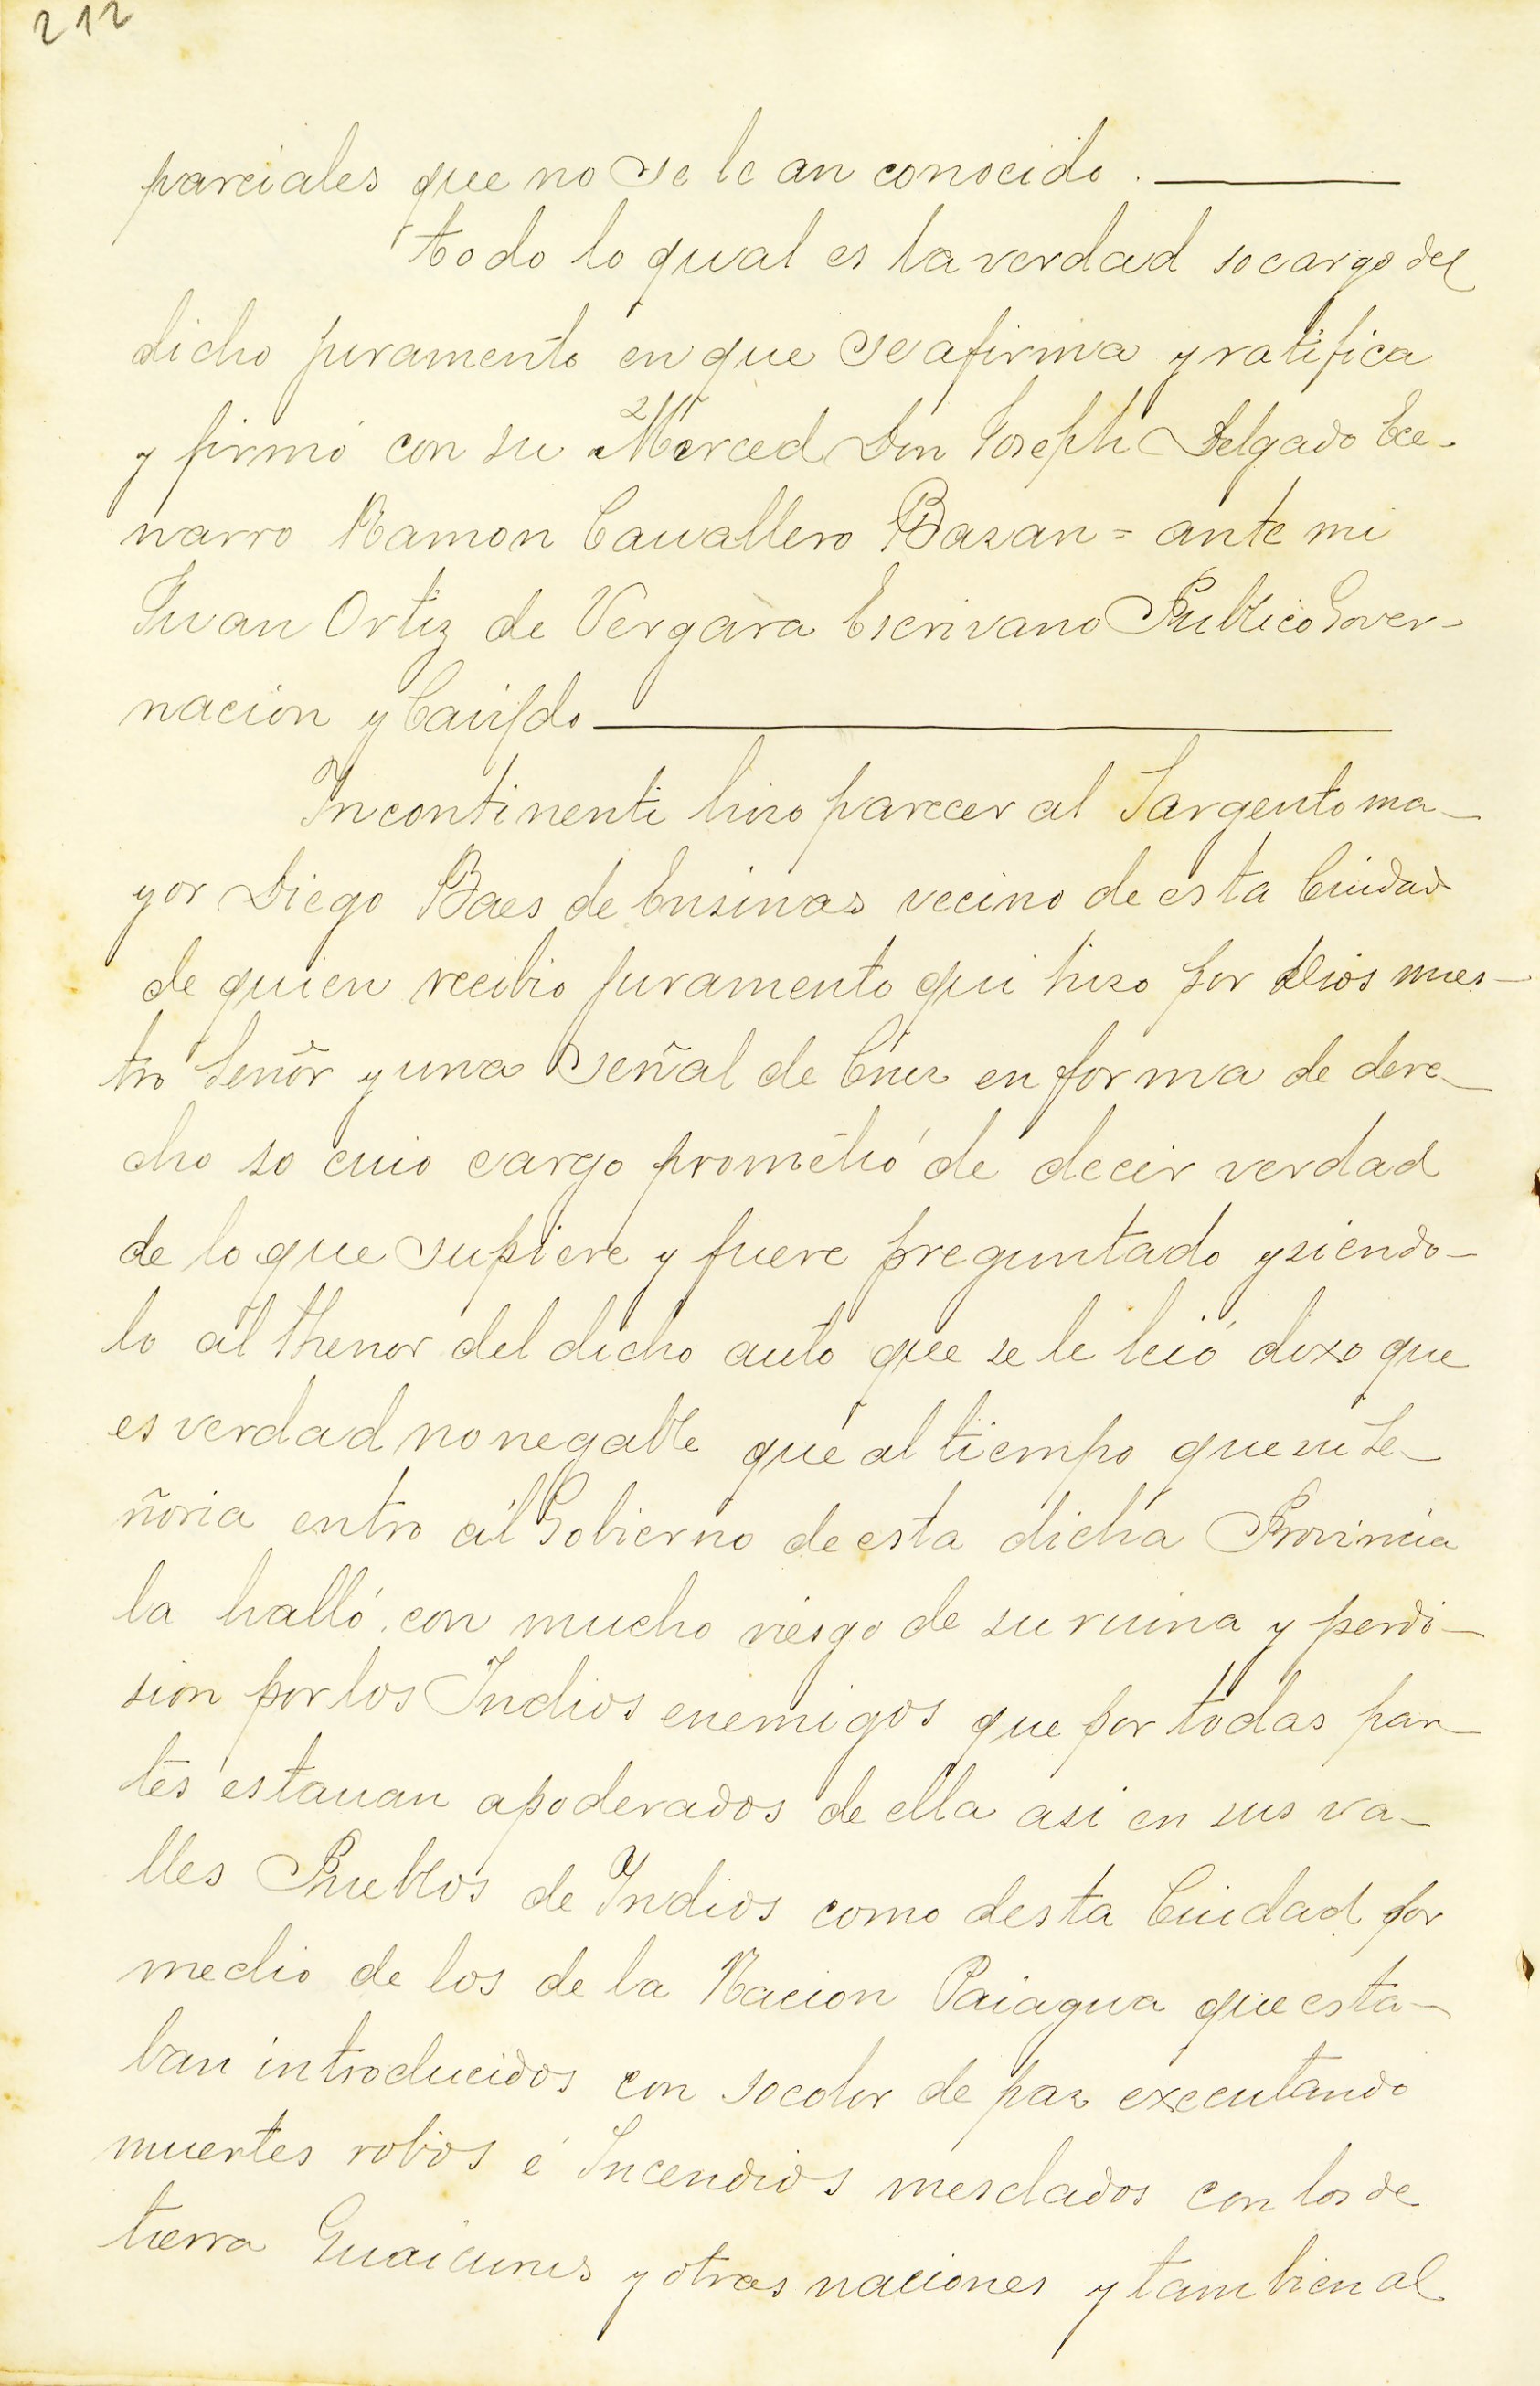 212
parciales que no se le an conocido . ———
todo lo qual es la verdad socargo del
dicho juramento en que se afirma y ratifica
y firmó con su Merced Don Joseph Delgado Ece-
narro Ramon Cauallero Bazan = ante mi
Juan Ortiz de Vergara Escrivano Publico Gover-
nacion y Cavildo ———
Incontinenti hizo parecer al Sargento ma-
yor Diego Baes de Ensinas vecino de esta Ciudad
de quien recibio juramento que hizo por Dios nues-
tro Señor y una señal de Cruz en forma de dere-
cho so cuio cargo prometió de decir verdad
de lo que supiere y fuere preguntado y siendo-
lo al thenor del dicho auto que se le leió dixo que
es verdad no negable que al tiempo que su Se-
ñoria entro al Gobierno de esta dicha Provincia
la halló con mucho riesgo de su ruina y perdi-
sion por los Indios enemigos que por todas par-
tes estauan apoderados de ella asi en sus va-
lles Pueblos de Indios como desta Ciudad por
medio de los de la Nacion Paiagua que esta-
ban introducidos con socolor de paz executando
muertes robos é Incendios mesclados con los de
tierra Guaicurus y otras naciones y tambien al